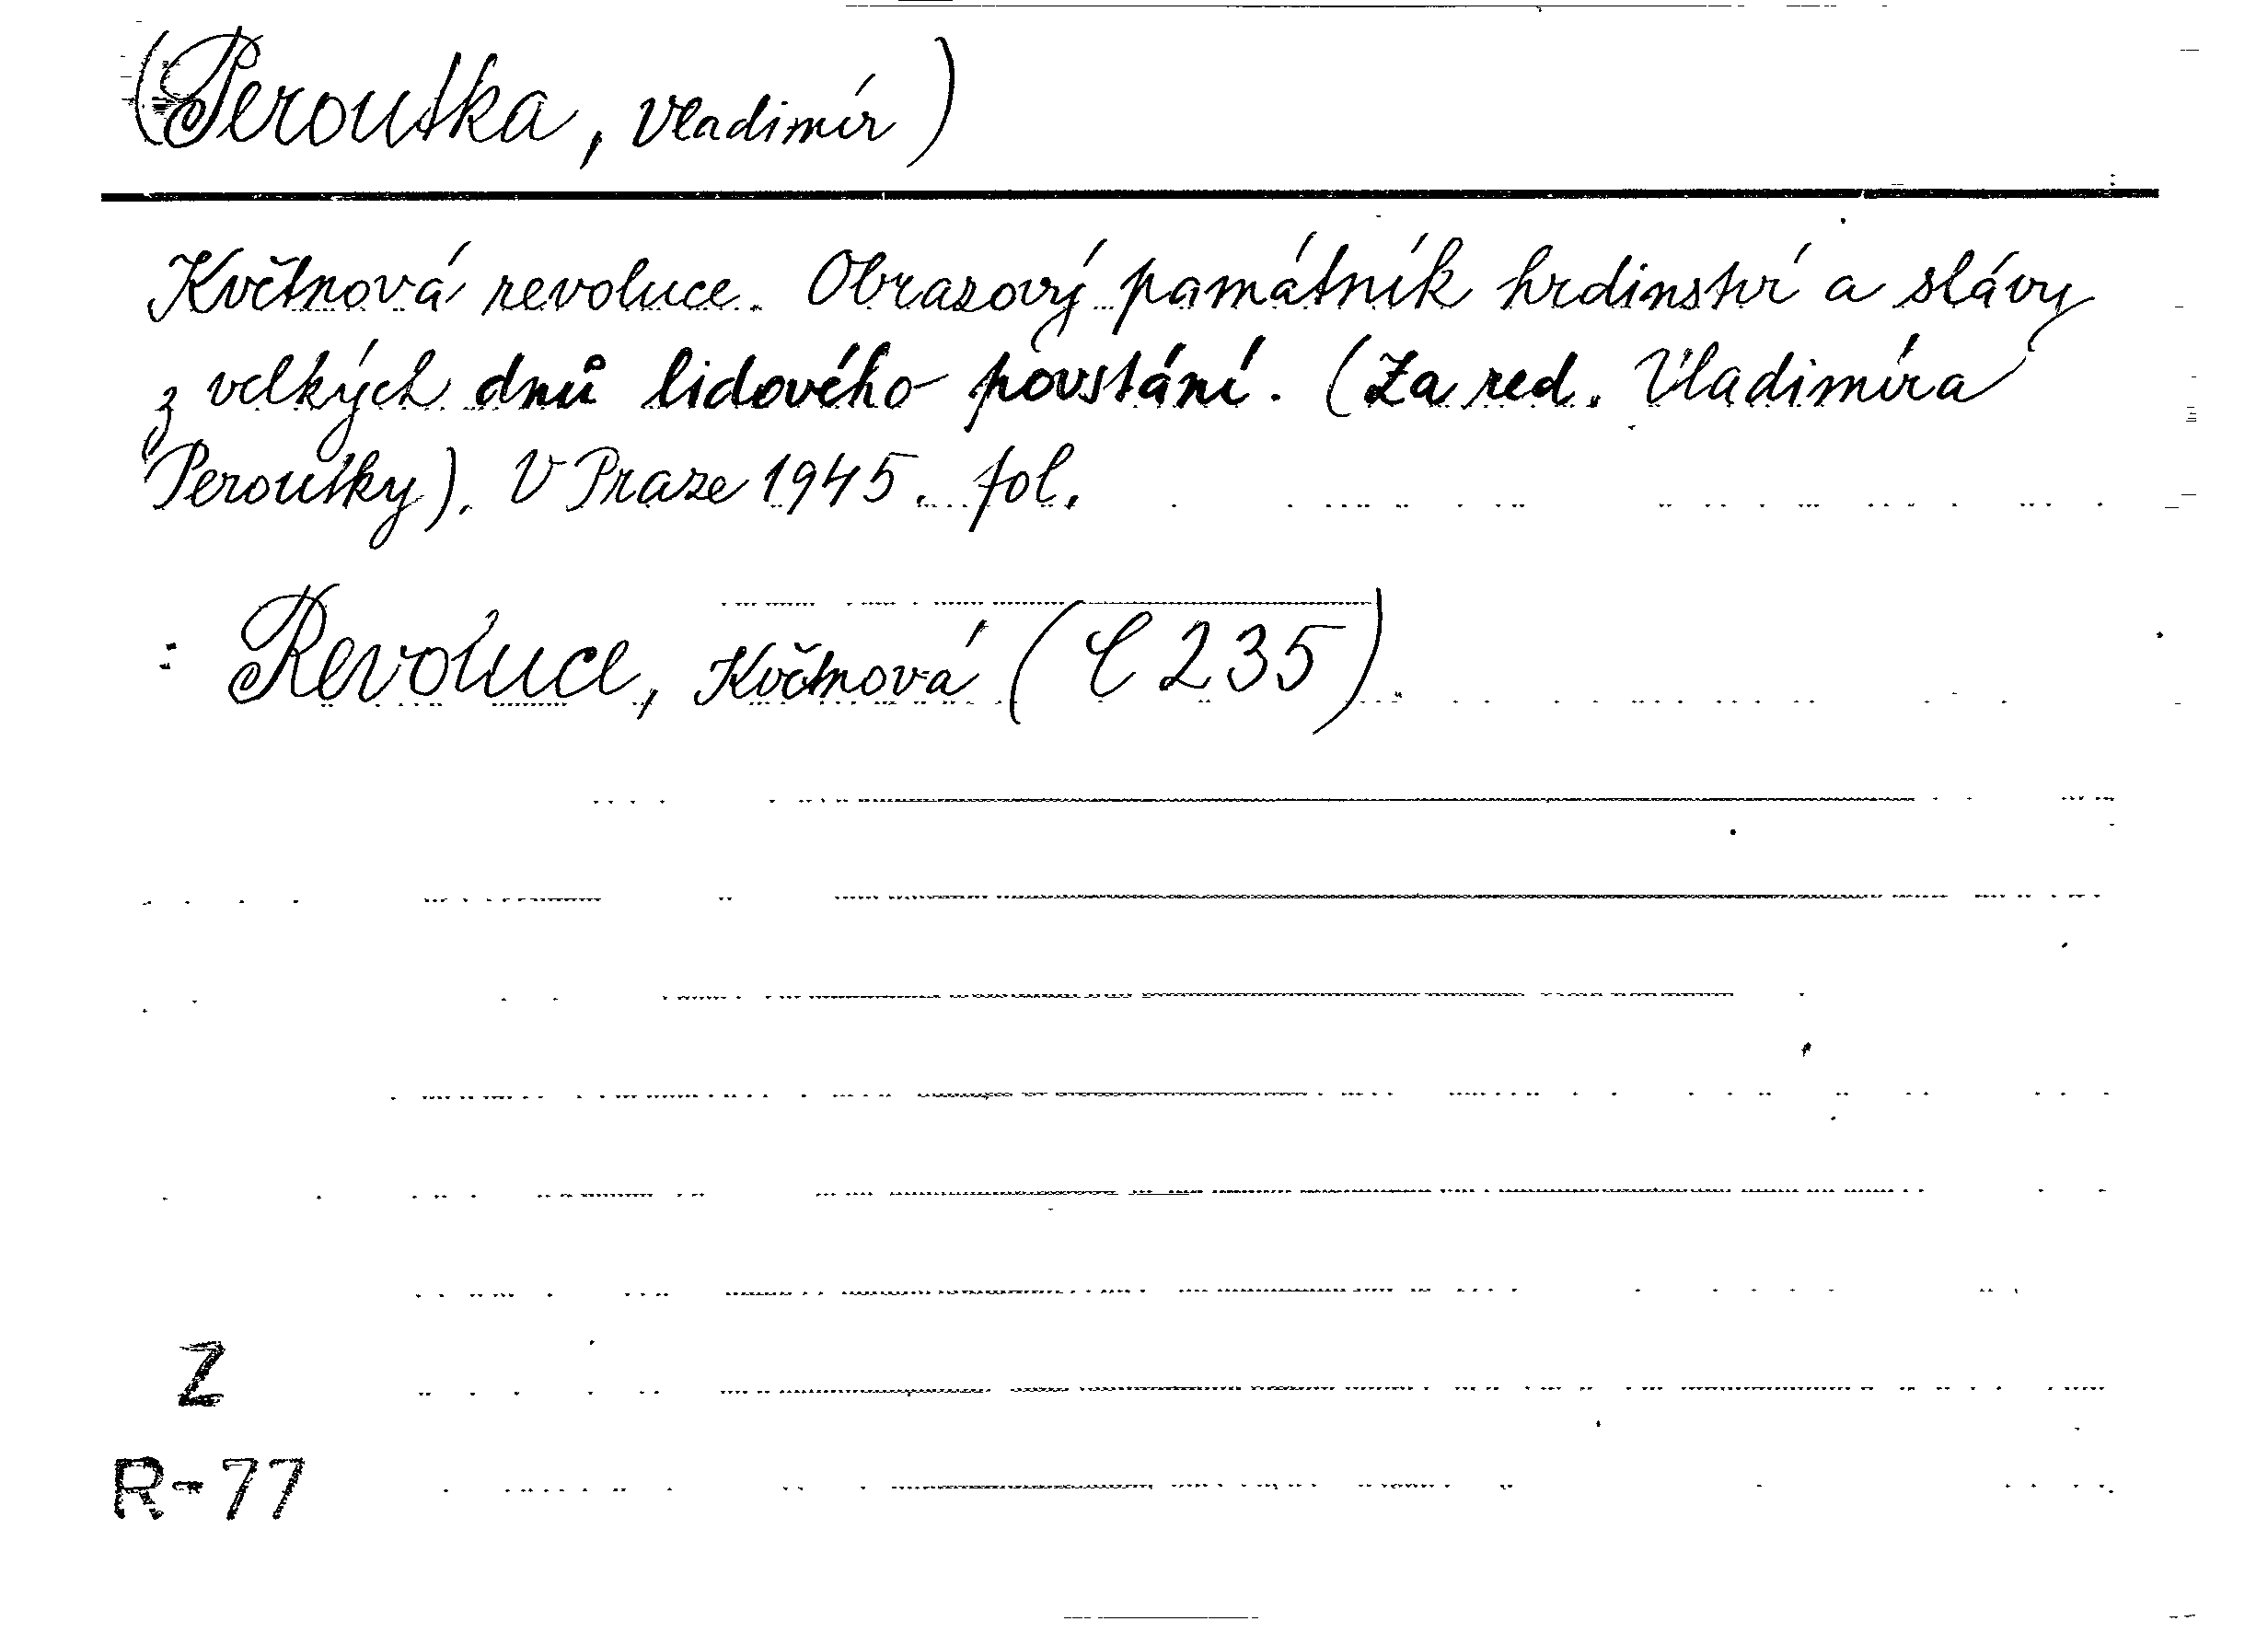 (Peroutka, Vladimír)
Květnová revoluce. Obrazový památník hrdinství a slávy
z velkých dnů lidového povstání. (Za red. Vladimíra
Peroutky). V Praze 1945. fol.
: Revoluce, Květnová (C 235)
Z
R-77